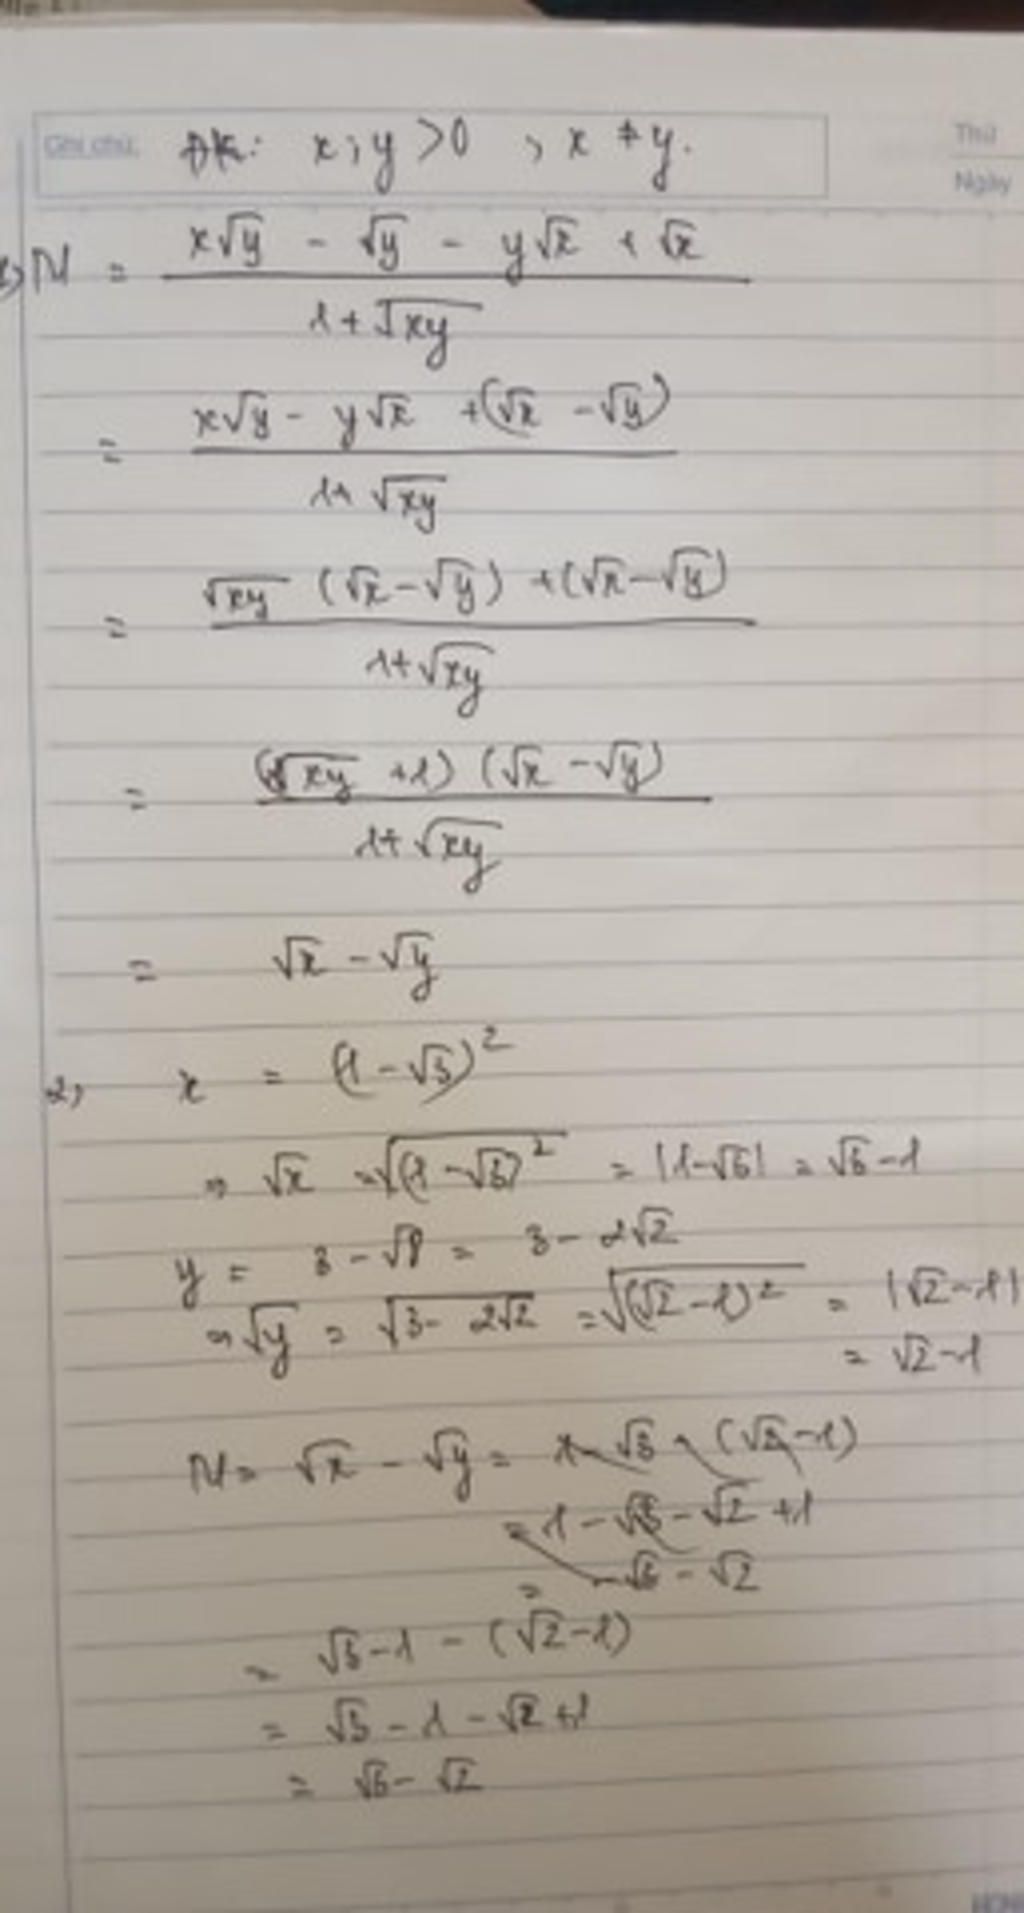 Ghi chú:
ĐK: x; y > 0 ; x ≠ y.
Thứ
Ngày
1, N = (x√y - √y - y√x + √x) / (1 + √xy)
= (x√y - y√x + (√x - √y)) / (1 + √xy)
= (√xy (√x - √y) + (√x - √y)) / (1 + √xy)
= ((√xy + 1) (√x - √y)) / (1 + √xy)
= √x - √y
2, x = (1 - √3)²
⇒ √x = √(1 - √3)² = |1 - √3| = √3 - 1
y = 3 - √8 = 3 - 2√2
⇒ √y = √(3 - 2√2) = √(√2 - 1)² = |√2 - 1|
= √2 - 1
N = √x - √y = 1 - √3 - (√2 - 1)
= 1 - √3 - √2 + 1
= -√3 - √2
= √3 - 1 - (√2 - 1)
= √3 - 1 - √2 + 1
= √3 - √2